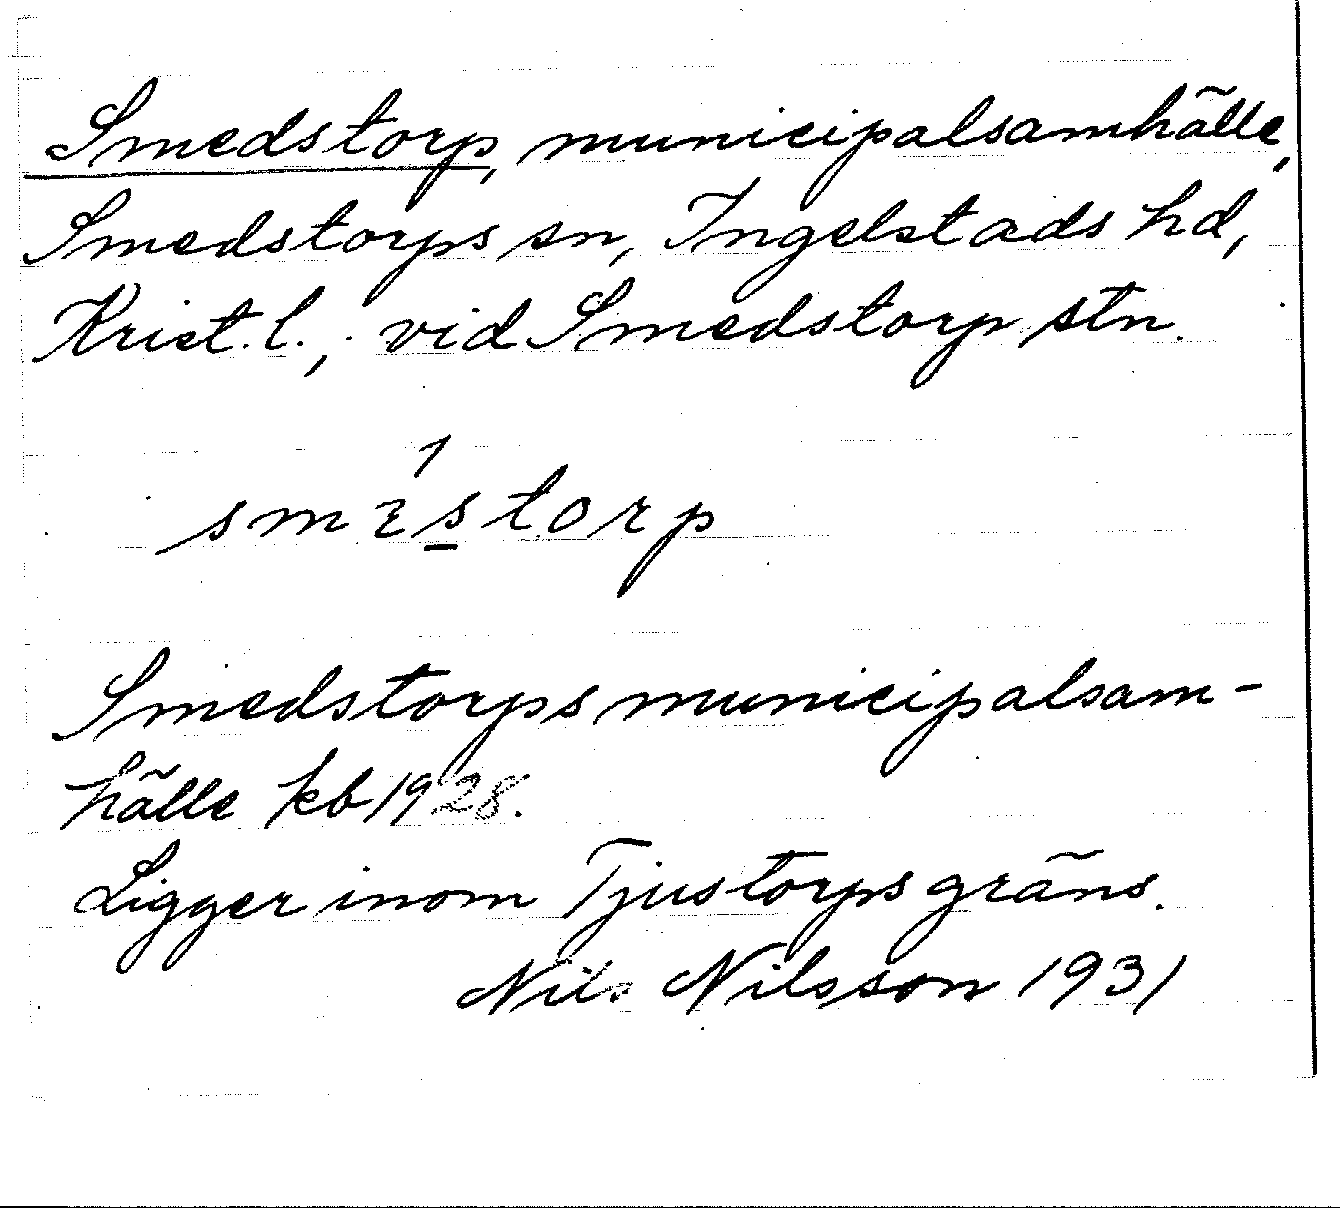 Smedstorp, municipalsamhälle,
Smedstorps sn, Ingelstads hd,
Krist. l., vid Smedstorp stn.
1
smɛstorp
Smedstorps municipalsam-
hälle kb 1928.
Ligger inom Tjustorps gräns.
Nils Nilsson 1931